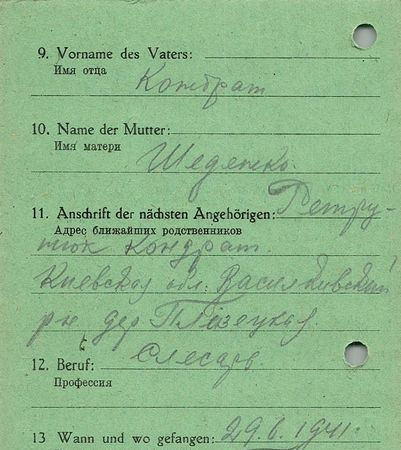 9. Vorname des Vaters:
Имя отца
Кондрат
10. Name der Mutter:
Имя матери
Шеденко.
11. Anschrift der nächsten Angehörigen: Петру-
Адрес ближайших родственников
тюк Кондрат.
Киевская обл. Василковский
р-н дер
12. Beruf: Слесарь
Профессия
13 Wann und wo gefangen: 29.6.1941.